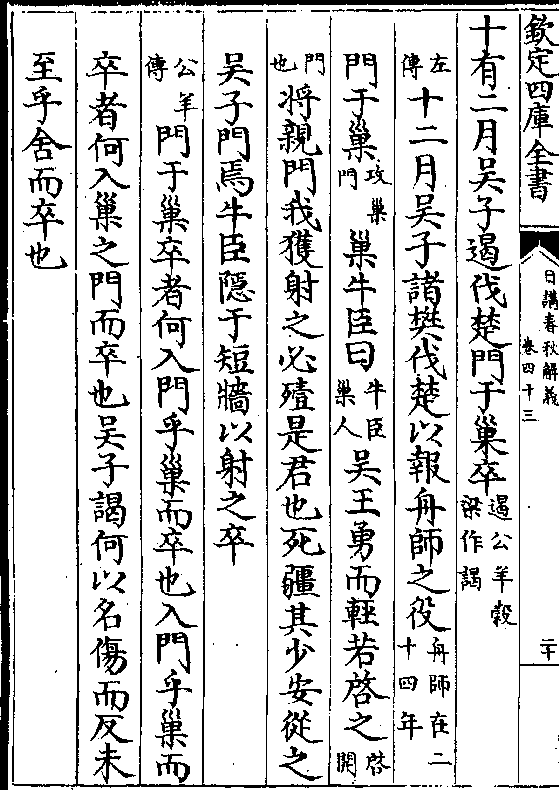 欽定四庫全書
日講春秋解義
卷四十三
二十
十有二月吳子遏伐楚門于巢卒遏公羊穀梁作謁
左傳十二月吳子諸樊伐楚以報舟師之役舟師在二十四年
門于巢攻巢門巢牛臣曰牛臣巢人吳王勇而輕若啓之啓開
門也將親門我獲射之必殪是君也死疆其少安從之
吳子門焉牛臣隱于短牆以射之卒
公羊傳門于巢卒者何入門乎巢而卒也入門乎巢而
卒者何入巢之門而卒也吳子謁何以名傷而反未
至乎舍而卒也